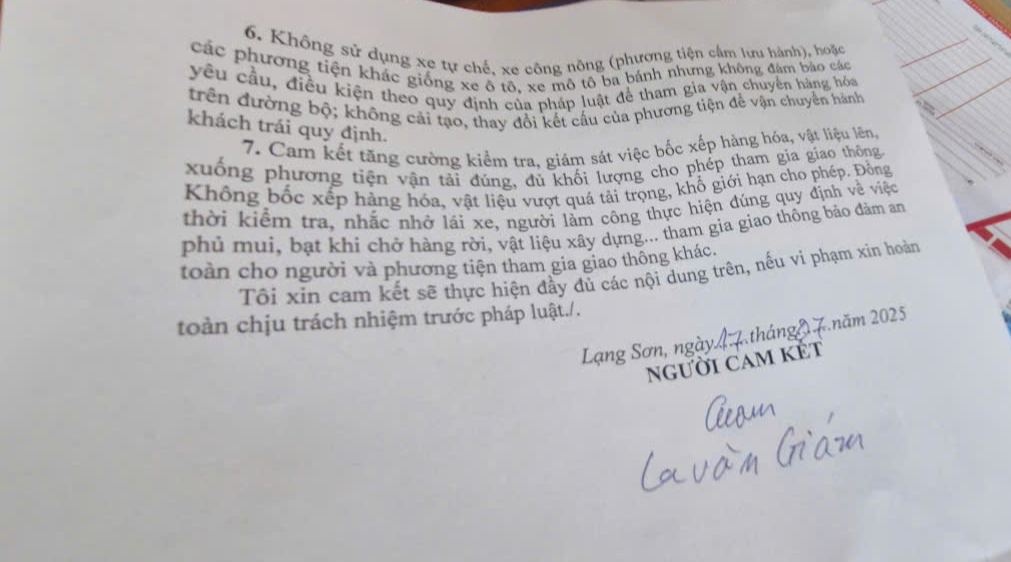 6. Không sử dụng xe tự chế, xe công nông (phương tiện cấm lưu hành), hoặc
các phương tiện khác giống xe ô tô, xe mô tô ba bánh nhưng không đảm bảo các
yêu cầu, điều kiện theo quy định của pháp luật để tham gia vận chuyển hàng hóa
trên đường bộ; không cải tạo, thay đổi kết cấu của phương tiện để vận chuyển hành
khách trái quy định.
7. Cam kết tăng cường kiểm tra, giám sát việc bốc xếp hàng hóa, vật liệu lên,
xuống phương tiện vận tải đúng, đủ khối lượng cho phép tham gia giao thông.
Không bốc xếp hàng hóa, vật liệu vượt quá tải trọng, khổ giới hạn cho phép. Đồng
thời kiểm tra, nhắc nhở lái xe, người làm công thực hiện đúng quy định về việc
phủ mui, bạt khi chở hàng rời, vật liệu xây dựng... tham gia giao thông bảo đảm an
toàn cho người và phương tiện tham gia giao thông khác.
Tôi xin cam kết sẽ thực hiện đầy đủ các nội dung trên, nếu vi phạm xin hoàn
toàn chịu trách nhiệm trước pháp luật./.
Lạng Sơn, ngày 17 tháng 07 năm 2025
NGƯỜI CAM KẾT
La văn Giám